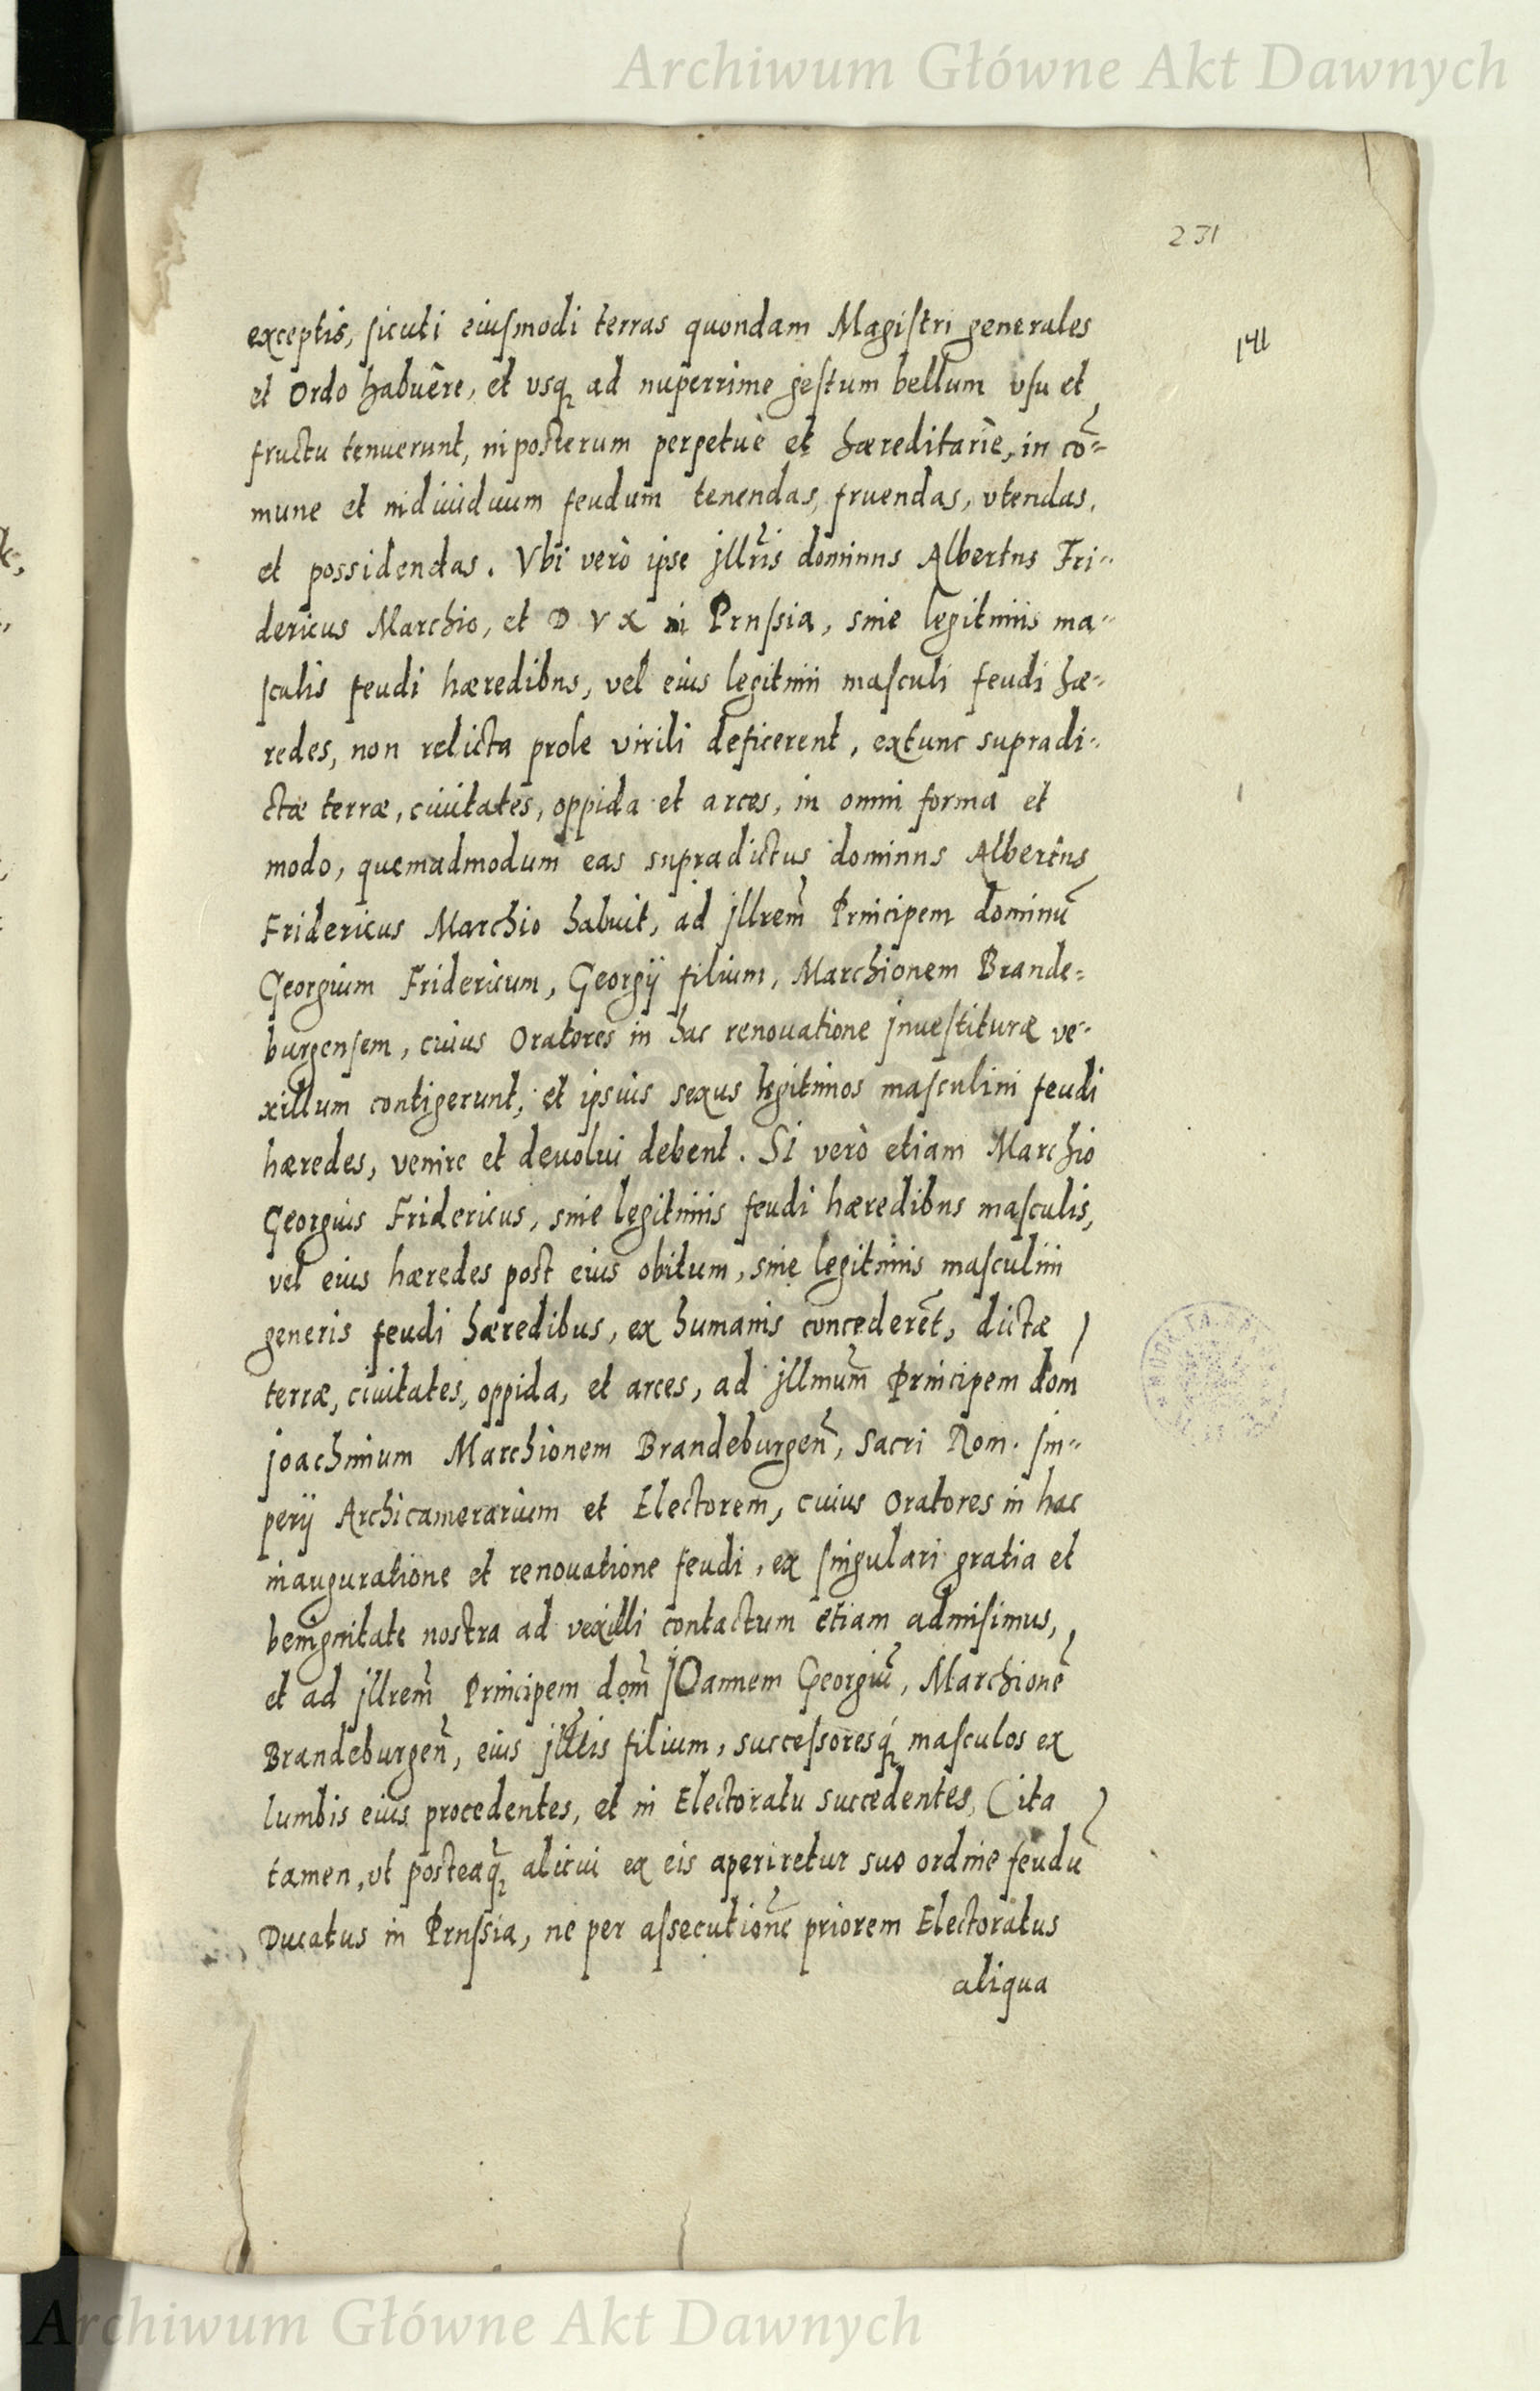 Archiwum Główne Akt Dawnych
231
141
exceptis, sicuti eiusmodi terras quondam Magistri generales
et Ordo habuêre, et vsq; ad nuperrime gestum bellum vsu et
fructu tenuerunt, inposterum perpetuè et hæreditariè, in cō-
mune et indiuiduum feudum tenendas, fruendas, vtendas,
et possidendas. Vbi verò ipse jllr̃is dominus Albertus Fri-
dericus Marchio, et DVX in Prussia, sine legitimis ma-
sculis feudi hæredibus, vel eius legitimi masculi feudi hæ-
redes, non relicta prole virili deficerent, extunc supradi-
ctæ terræ, ciuitates, oppida et arces, in omni forma et
modo, quemadmodum eas supradictus dominus Albertus
Fridericus Marchio habuit, ad jllrem̃ Principem dominũ
Georgium Fridericum, Georgij filium, Marchionem Brande-
burgensem, cuius Oratores in hac renouatione jnuestituræ ve-
xillum contigerunt, et ipsius sexus legitimos masculini feudi
hæredes, venire et deuolui debent. Si verò etiam Marchio
Georgius Fridericus, sine legitimis feudi hæredibus masculis,
vel eius hæredes post eius obitum, sine legitimis masculini
generis feudi hæredibus, ex humanis concederẽt, dictæ
terræ, ciuitates, oppida, et arces, ad jllmum̃ Principem dom̃
joachimum Marchionem Brandeburgeñ, Sacri Rom. jm-
perij Archicamerarium et Electorem, cuius Oratores in hac
inauguratione et renouatione feudi, ex singulari gratia et
benignitate nostra ad vexilli contactum etiam admisimus,
et ad jllrem̃ Principem dom̃ jOannem Georgiũ, Marchionẽ
Brandeburgeñ, eius jlltis filium, successoresq́; masculos ex
lumbis eius procedentes, et in Electoratu succedentes, (ita
tamen, vt posteaq̃; alicui ex eis aperiretur suo ordine feudũ
Ducatus in Prussia, ne per assecutionẽ priorem Electoratus
aliqua
Archiwum Główne Akt Dawnych